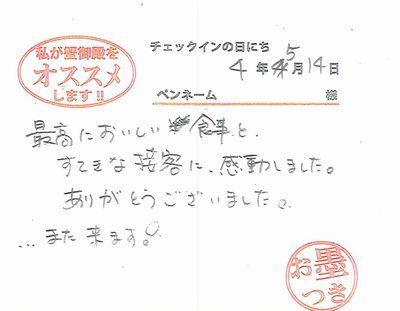 私が蟹御殿を
オススメ
します!!
チェックインの日にち
4年5月14日
ペンネーム 様
最高においしい食事と、
すてきな接客に、感動しました。
ありがとうございました。
...また来ます。
お墨
つき